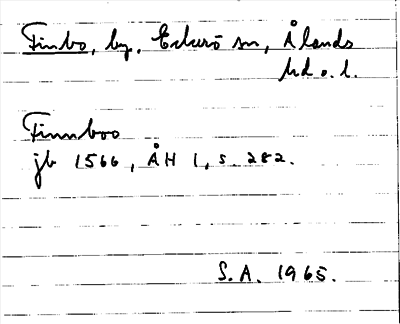 Finbo, by, Eckerö sn, Ålands
hd o. l.
Finnboo
jb 1566, ÅH 1, s. 282.
S.A. 1965.